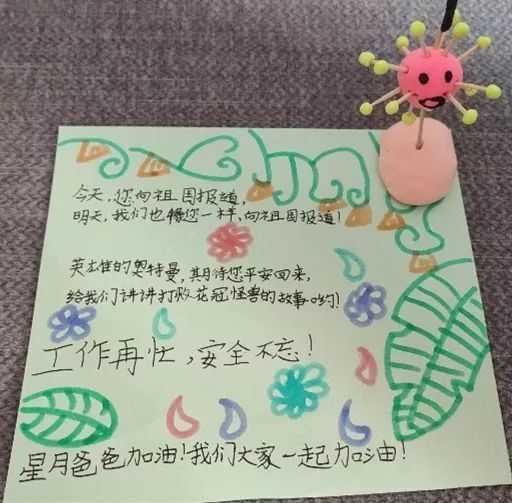 今天,您向祖国报道,
明天,我们也像您一样,向祖国报道!
英雄的奥特曼,期待您平安回来,
给我们讲讲打败花冠怪兽的故事哟!
工作再忙,安全不忘!
星月爸爸加油!我们大家一起加油!